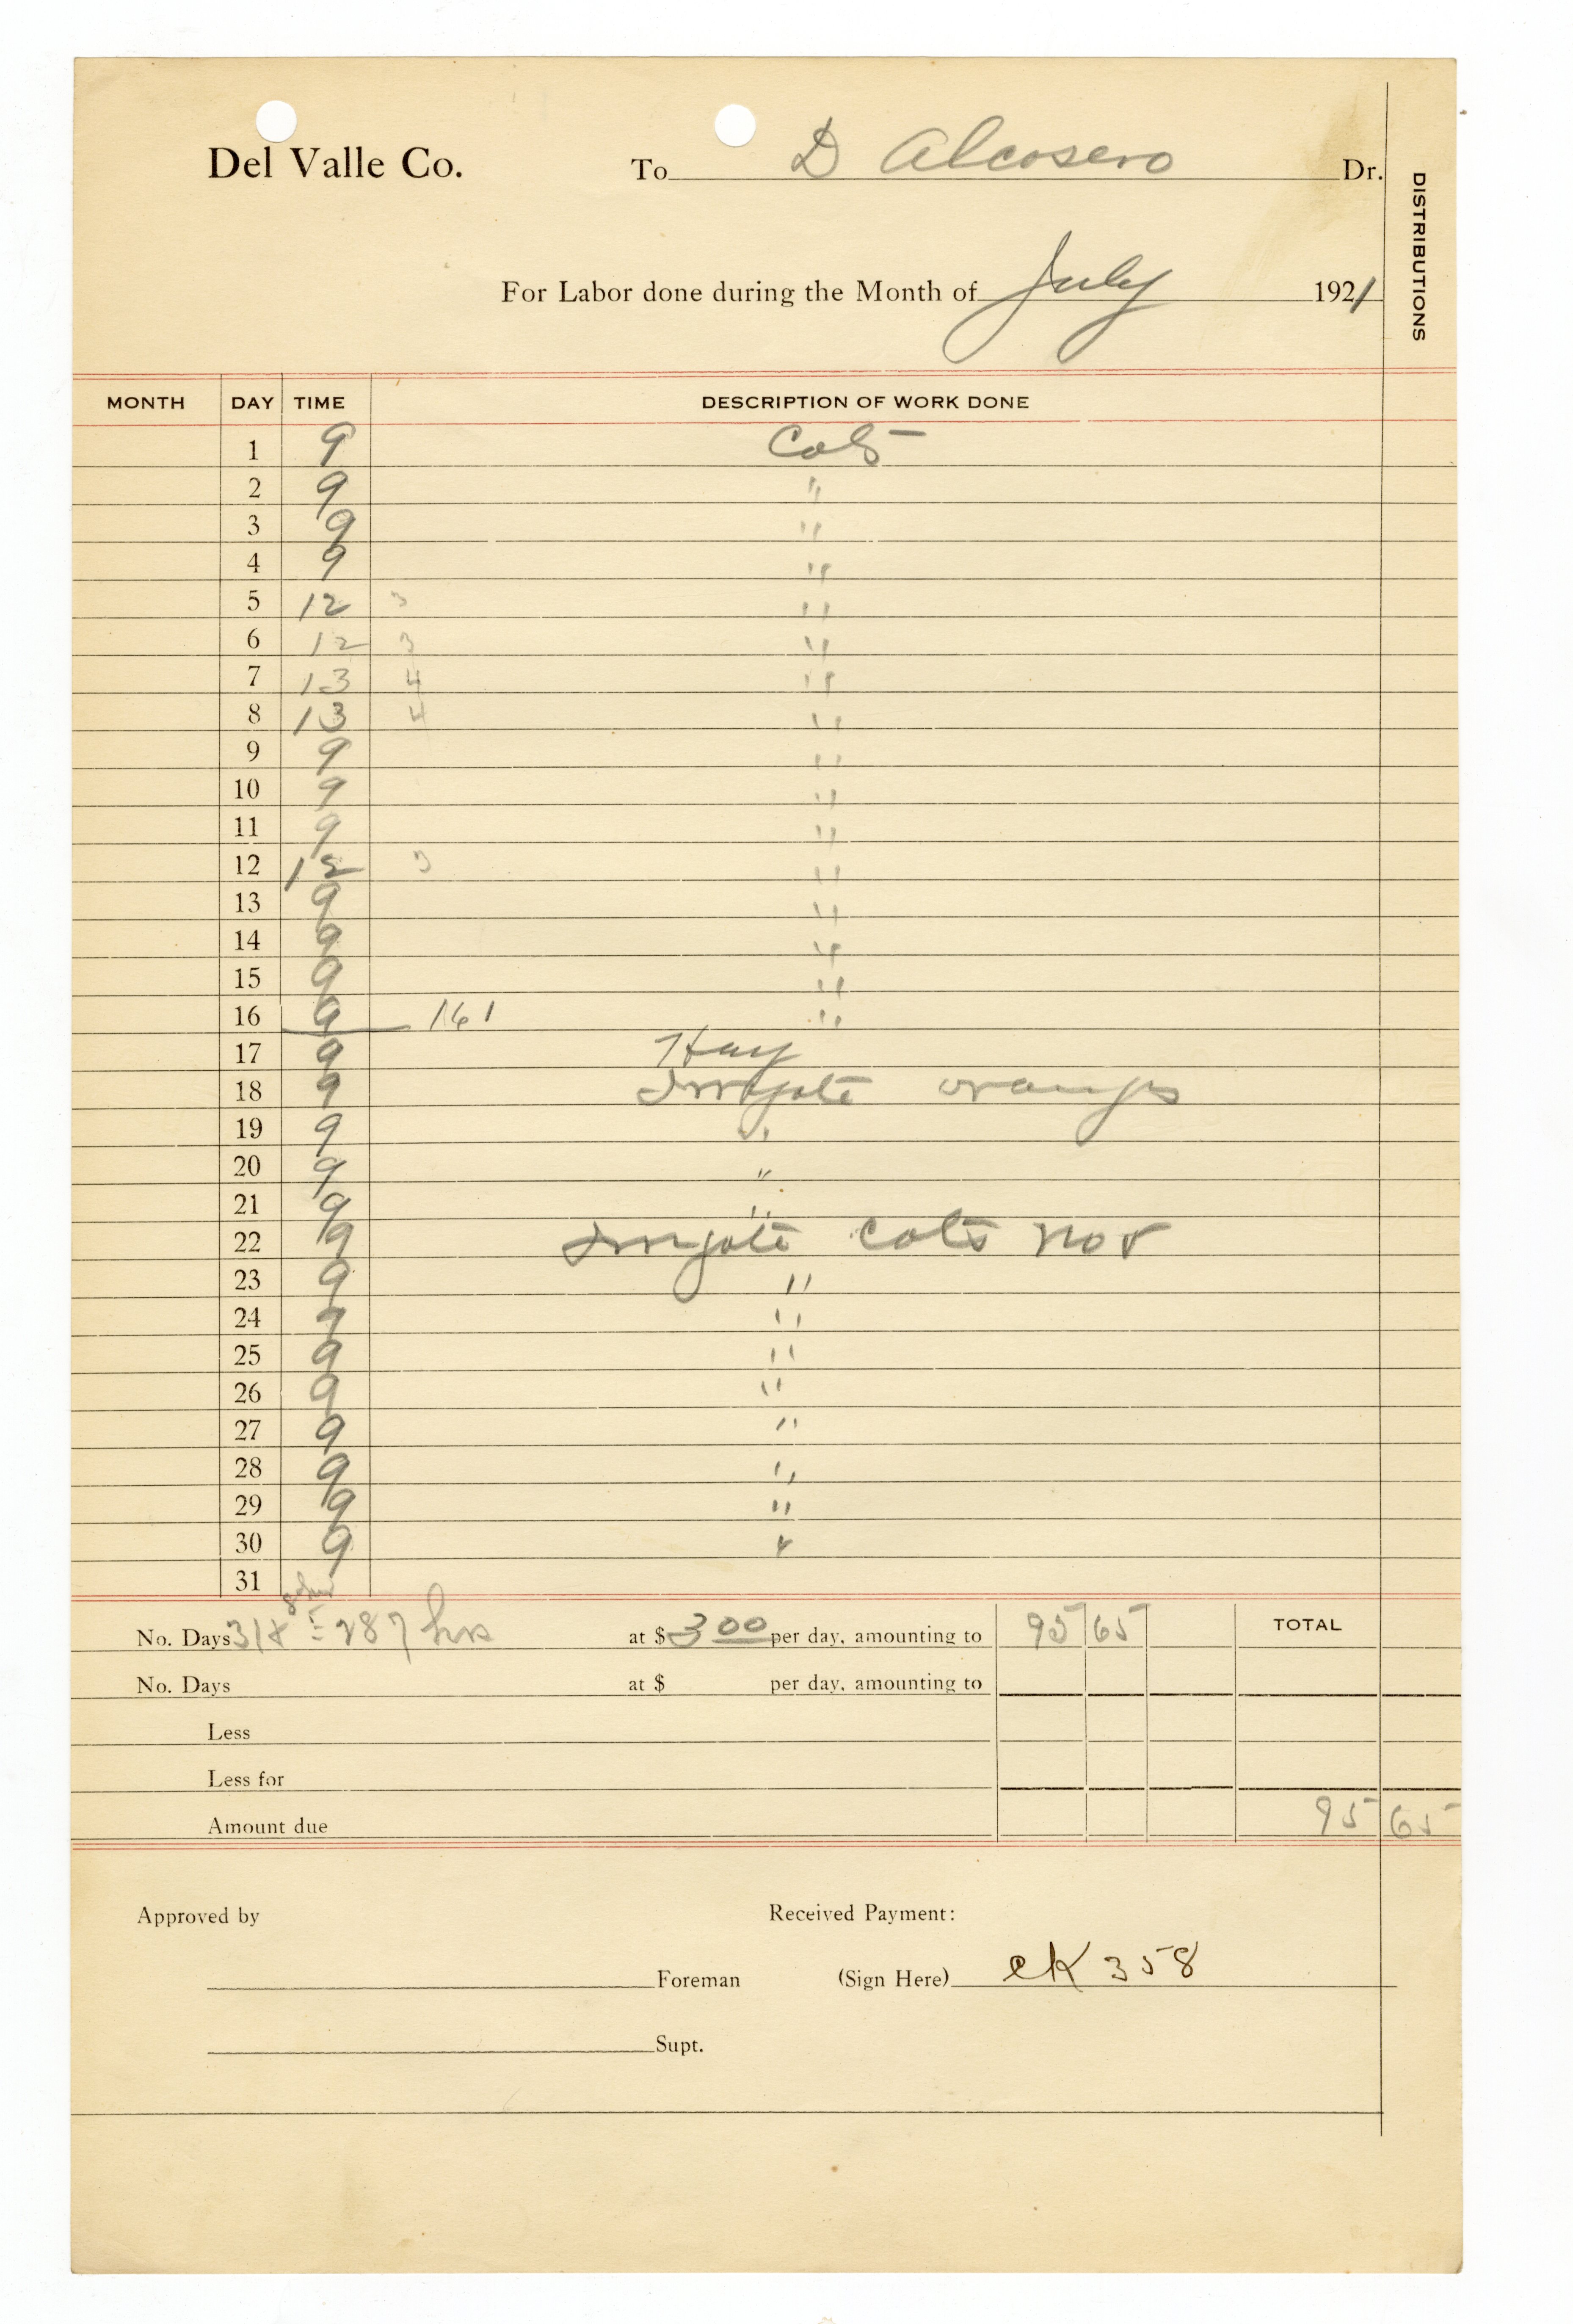 Del Valle Co. To D Alcosero Dr.
DISTRIBUTIONS
For Labor done during the Month of July 1921
MONTH DAY TIME DESCRIPTION OF WORK DONE
1 9 Cots
2 9 "
3 9 "
4 9 "
5 12 3 "
6 12 3 "
7 13 4 "
8 13 4 "
9 9 "
10 9 "
11 9 "
12 12 3 "
13 9 "
14 9 "
15 9 "
16 9 161 "
17 9 Hay
18 9 Irrigate oranges
19 9 "
20 9 "
21 9 "
22 9 Irrigate cots
23 9 "
24 9 "
25 9 "
26 9 "
27 9 "
28 9 "
29 9 "
30 9 "
31
No. Days 31 8 = 287 hrs at $ 3 00 per day, amounting to 95 65 TOTAL
No. Days at $ per day, amounting to
Less
Less for
Amount due 95 65
Approved by Received Payment:
Foreman (Sign Here) ck 358
Supt.